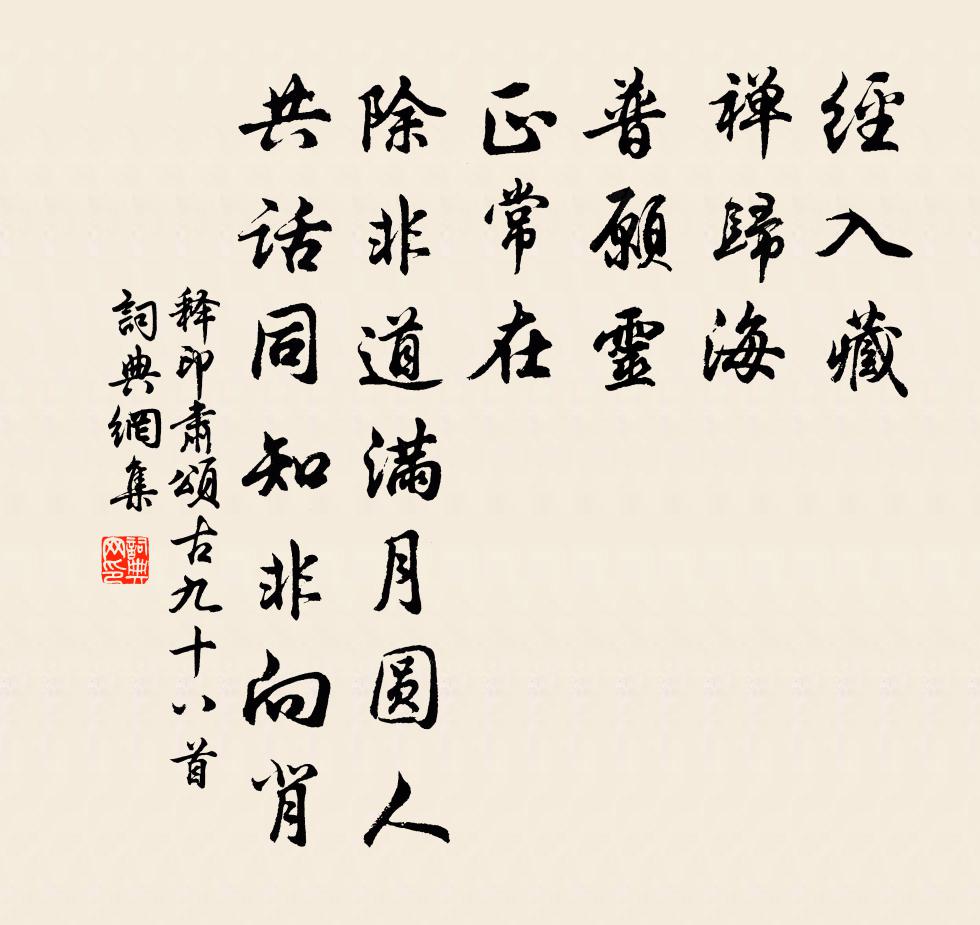 經入藏
禅歸海
普願靈
正常在
除非道满月圆人
共话同知非向背
释印肃頌古九十八首
詞典網集
詞典网印